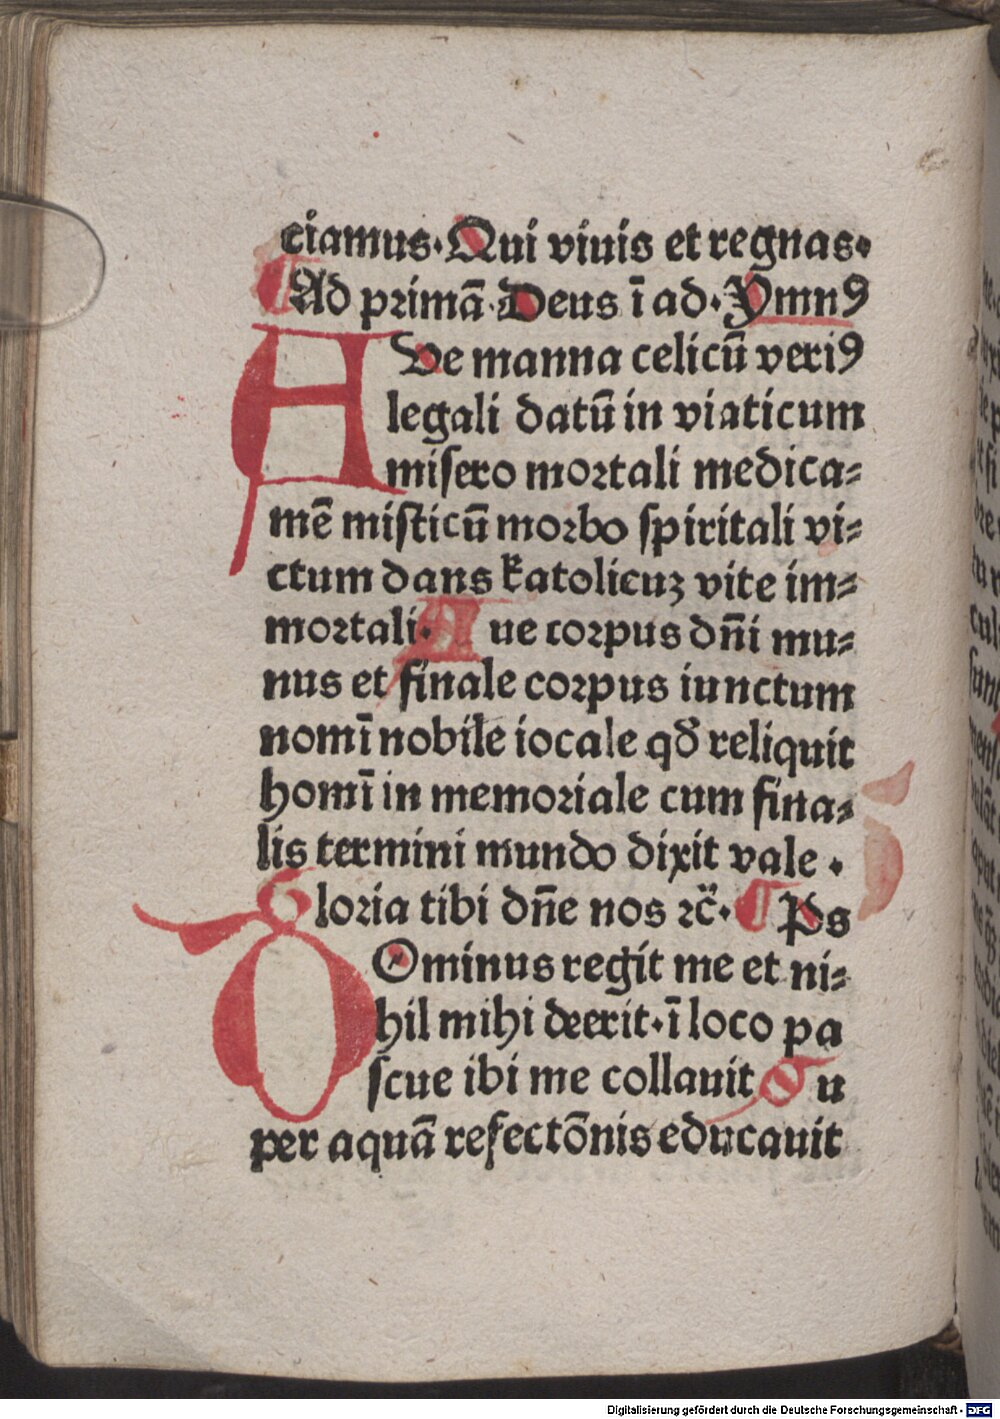 ciamus. Qui viuis et regnas.
¶ Ad primā. Deus ī ad. Ymnꝯ
AVe manna celicū veriꝯ
legali datū in viaticum
misero mortali medica⸗
mē misticū morbo spiritali vi⸗
ctum dans katolicuꝫ vite im⸗
mortali. Aue corpus dn̄i mu⸗
nus et finale corpus iunctum
nomī nobile iocale qđ reliquit
homī in memoriale cum fina⸗
lis termini mundo dixit vale .
Gloria tibi dn̄e nos ꝛc̄. ¶ Ps
DOminus regit me et ni⸗
hil mihi deerit. ī loco pa
scue ibi me collauit Su
per aquā refectōnis educauit
Digitalisierung gefördert durch die Deutsche Forschungsgemeinschaft - DFG